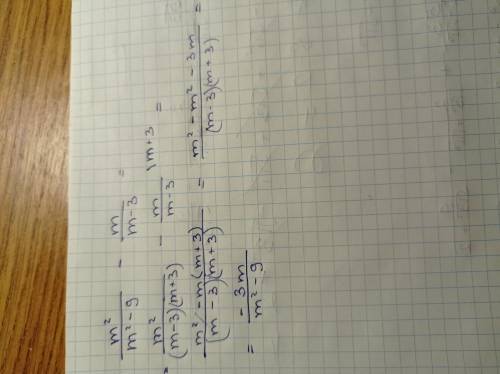 m²/(m² - 9) - m/(m - 3) =
= m²/((m-3)(m+3)) - m/(m-3) \m+3 =
(m² - m(m+3))/((m - 3)(m+3)) = (m² - m² - 3m)/((m-3)(m+3)) =
= (-3m)/(m² - 9)